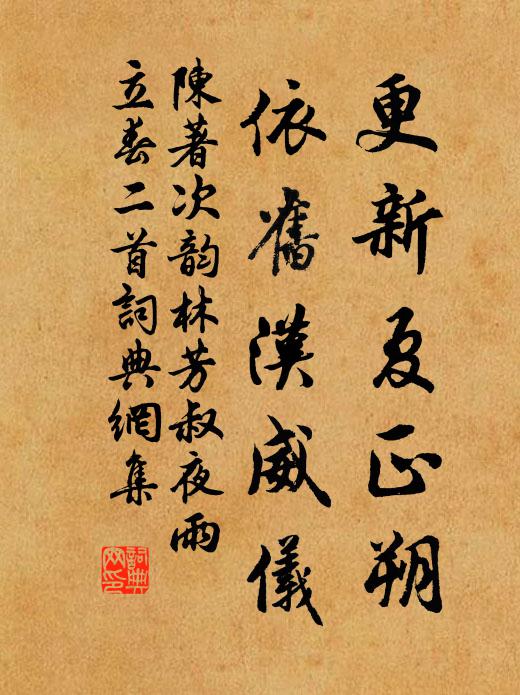 更新夏正朔
依舊漢威儀
陳著次韵林芳叔夜雨
立春二首詞典網集
詞典
网印